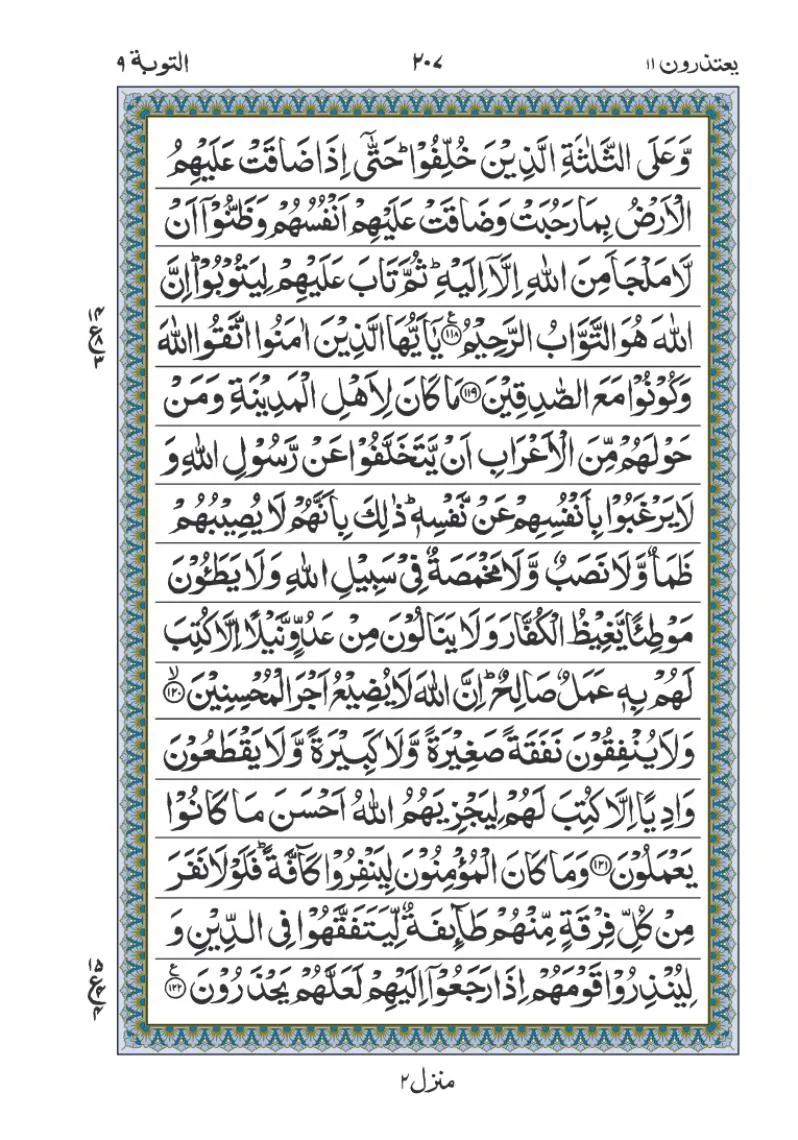 يعتذرون ١١ ٢٠٧ التوبة ٩
وَّعَلَى الثَّلٰثَةِ الَّذِيْنَ خُلِّفُوْا ؕ حَتّٰۤى اِذَا ضَاقَتْ عَلَيْهِمُ
الْاَرْضُ بِمَا رَحُبَتْ وَضَاقَتْ عَلَيْهِمْ اَنْفُسُهُمْ وَظَنُّوْۤا اَنْ
لَّا مَلْجَاَ مِنَ اللّٰهِ اِلَّاۤ اِلَيْهِ ؕ ثُمَّ تَابَ عَلَيْهِمْ لِيَتُوْبُوْا ؕ اِنَّ
اللّٰهَ هُوَ التَّوَّابُ الرَّحِيْمُ ﴿١١٨﴾ يٰۤاَيُّهَا الَّذِيْنَ اٰمَنُوا اتَّقُوا اللّٰهَ
وَكُوْنُوْا مَعَ الصّٰدِقِيْنَ ﴿١١٩﴾ مَا كَانَ لِاَهْلِ الْمَدِيْنَةِ وَمَنْ
حَوْلَهُمْ مِّنَ الْاَعْرَابِ اَنْ يَّتَخَلَّفُوْا عَنْ رَّسُوْلِ اللّٰهِ وَ
لَا يَرْغَبُوْا بِاَنْفُسِهِمْ عَنْ نَّفْسِهٖ ؕ ذٰلِكَ بِاَنَّهُمْ لَا يُصِيْبُهُمْ
ظَمَاٌ وَّلَا نَصَبٌ وَّلَا مَخْمَصَةٌ فِيْ سَبِيْلِ اللّٰهِ وَلَا يَطَئُوْنَ
مَوْطِئًا يَّغِيْظُ الْكُفَّارَ وَلَا يَنَالُوْنَ مِنْ عَدُوٍّ نَّيْلًا اِلَّا كُتِبَ
لَهُمْ بِهٖ عَمَلٌ صَالِحٌ ؕ اِنَّ اللّٰهَ لَا يُضِيْعُ اَجْرَ الْمُحْسِنِيْنَ ﴿١٢٠﴾ ۙ
وَلَا يُنْفِقُوْنَ نَفَقَةً صَغِيْرَةً وَّلَا كَبِيْرَةً وَّلَا يَقْطَعُوْنَ
وَادِيًا اِلَّا كُتِبَ لَهُمْ لِيَجْزِيَهُمُ اللّٰهُ اَحْسَنَ مَا كَانُوْا
يَعْمَلُوْنَ ﴿١٢١﴾ وَمَا كَانَ الْمُؤْمِنُوْنَ لِيَنْفِرُوْا كَآفَّةً ؕ فَلَوْلَا نَفَرَ
مِنْ كُلِّ فِرْقَةٍ مِّنْهُمْ طَآئِفَةٌ لِّيَتَفَقَّهُوْا فِى الدِّيْنِ وَ
لِيُنْذِرُوْا قَوْمَهُمْ اِذَا رَجَعُوْۤا اِلَيْهِمْ لَعَلَّهُمْ يَحْذَرُوْنَ ﴿١٢٢﴾ ع
١٤ ع ٨ ٣
١٥ ع ٤ ٤
منزل ٢